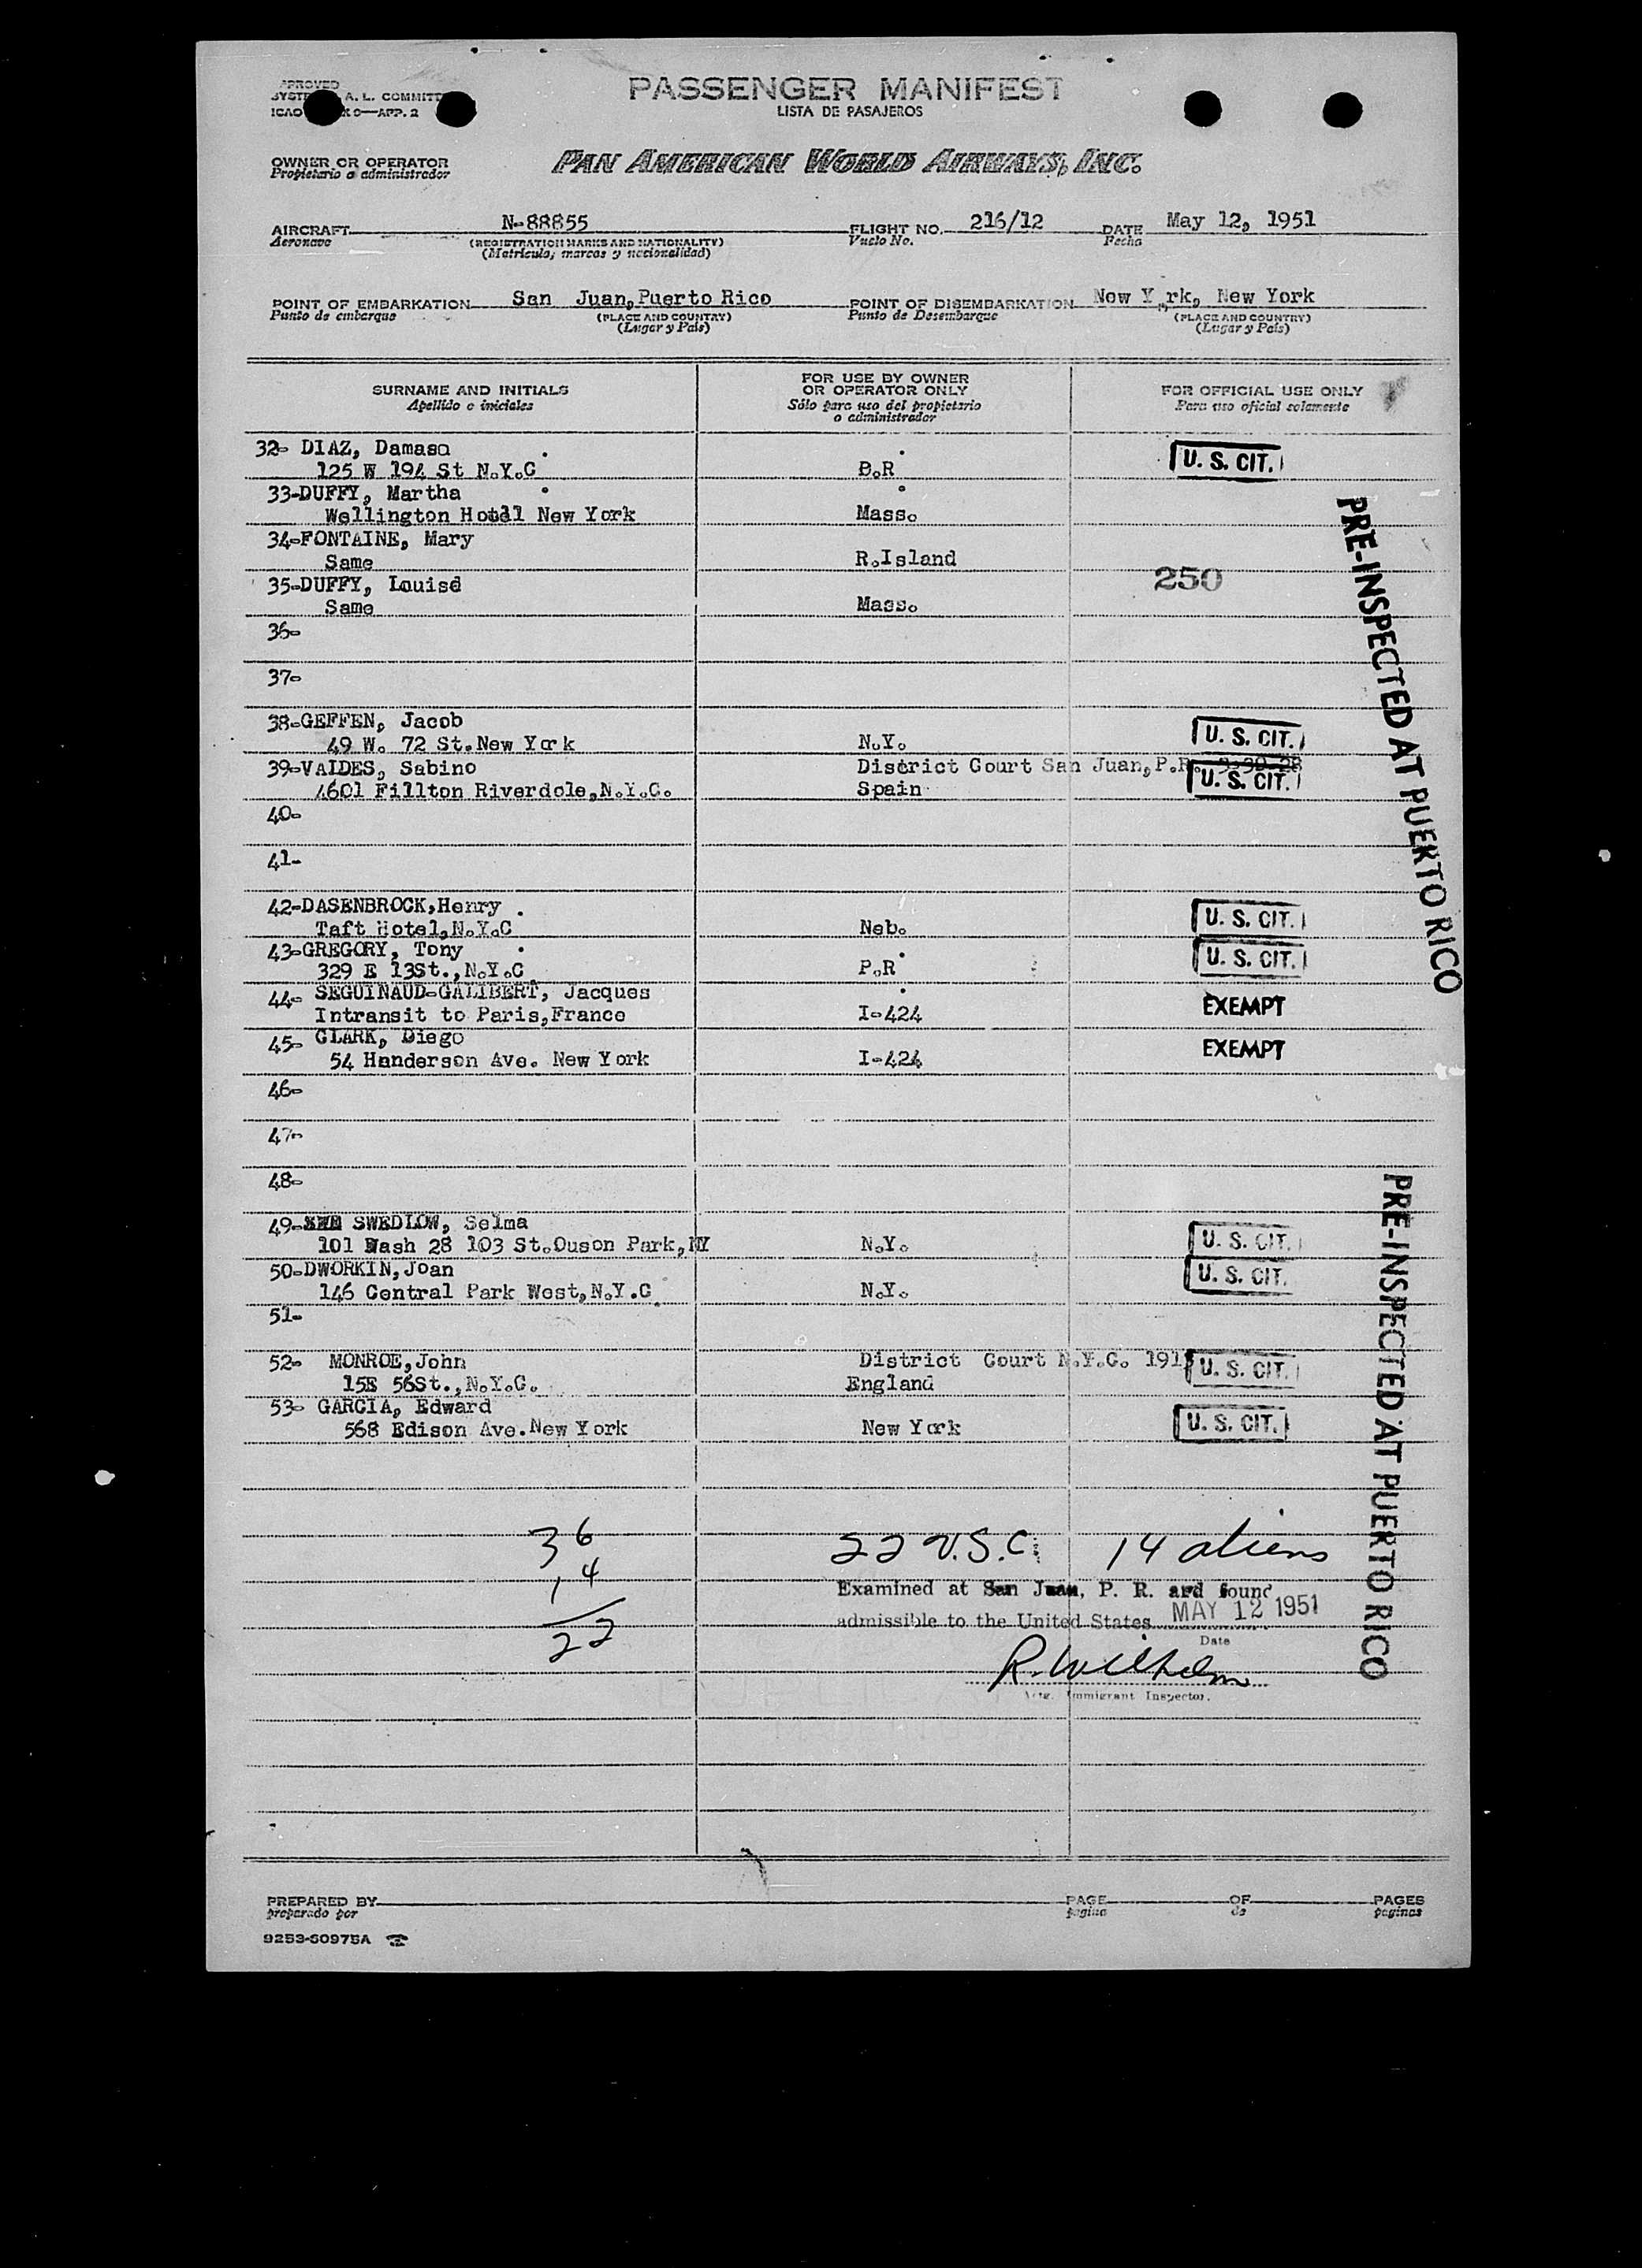 PASSENGER MANIFEST
LISTA DE PASAJEROS
APPROVED
A. L. COMMITT
ICAO 9—APP. 2
OWNER OR OPERATOR
Propietario o administrador
PAN AMERICAN WORLD AIRWAYS, INC.
AIRCRAFT N-88855 FLIGHT NO. 216/12 DATE May 12, 1951
Aeronave (REGISTRATION MARKS AND NATIONALITY) Vuelo No. Fecha
(Matrícula, marcas y nacionalidad)
POINT OF EMBARKATION San Juan, Puerto Rico POINT OF DISEMBARKATION New Y rk, New York
Punto de embarque (PLACE AND COUNTRY) Punto de Desembarque (PLACE AND COUNTRY)
(Lugar y País) (Lugar y País)
SURNAME AND INITIALS
Apellido e iniciales
FOR USE BY OWNER
OR OPERATOR ONLY
Sólo para uso del propietario
o administrador
FOR OFFICIAL USE ONLY
Para uso oficial solamente
32- DIAZ, Damaso
125 W 194 St N.Y.C P.R U. S. CIT.
33-DUFFY, Martha
Wellington Hotel New York Mass.
34-FONTAINE, Mary
Same R.Island
35-DUFFY, Louise 250
Same Mass.
36-
37-
38-GEFFEN, Jacob
49 W. 72 St.New York N.Y. U. S. CIT.
39-VALDES, Sabino District Court San Juan,P.R.
4601 Fillton Riverdole,N.Y.C. Spain U. S. CIT.
40-
41-
42-DASENBROCK,Henry
Taft Hotel,N.Y.C Neb. U. S. CIT.
43-GREGORY, Tony
329 E 13St.,N.Y.C P.R U. S. CIT.
44- SEGUINAUD-GALIBERT, Jacques
Intransit to Paris,France I-424 EXEMPT
45- CLARK, Diego
54 Handerson Ave. New York I-424 EXEMPT
46-
47-
48-
49- SWEDLOW, Selma
101 Wash 28 103 St.Ouson Park,NY N.Y. U. S. CIT.
50-DWORKIN,Joan
146 Central Park West,N.Y.C N.Y. U. S. CIT.
51-
52- MONROE,John District Court N.Y.C. 191
15E 56St.,N.Y.C. England U. S. CIT.
53- GARCIA, Edward
568 Edison Ave.New York New York U. S. CIT.
PRE-INSPECTED AT PUERTO RICO
PRE-INSPECTED AT PUERTO RICO
36
14
22
22 U.S.C. 14 aliens
Examined at San Juan, P. R. and found
admissible to the United States MAY 12 1951
Date
R. Wilhelm
Actg. Immigrant Inspector.
PREPARED BY PAGE OF PAGES
preparado por pagina de paginas
9253-60975A